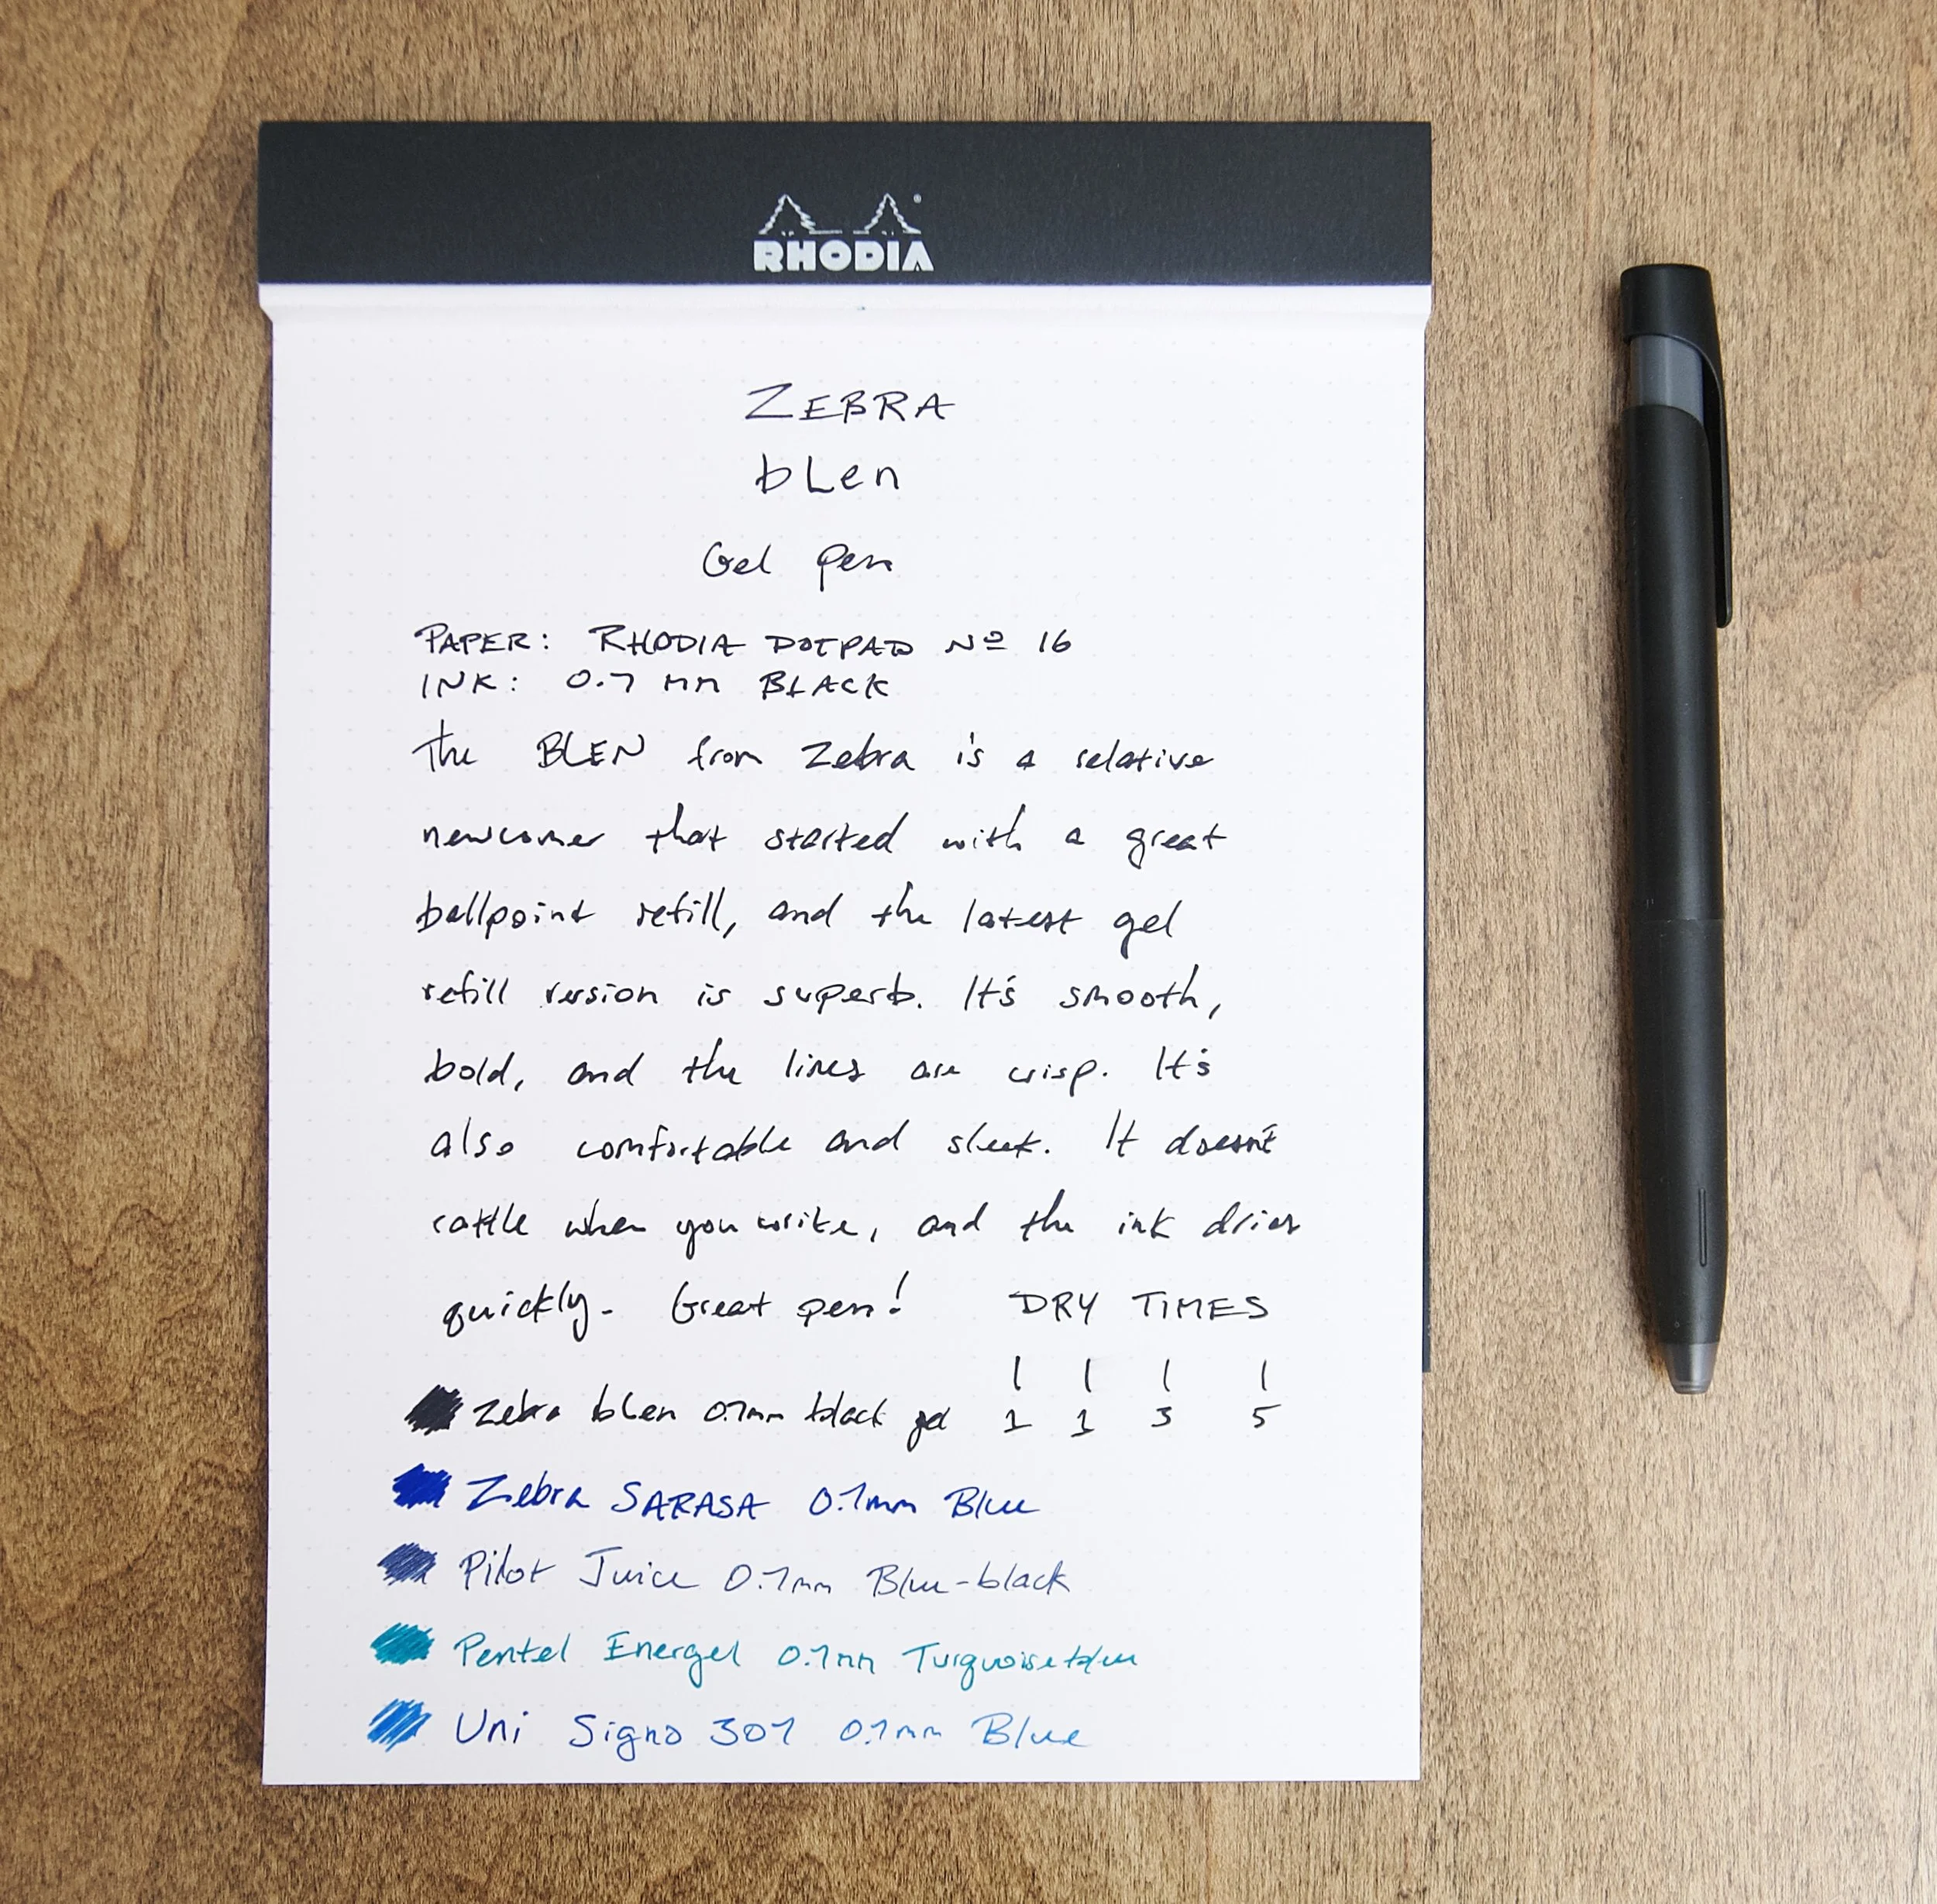 RHODIA
ZEBRA
bLen
Gel Pen
PAPER: RHODIA DOTPAD Nº 16
INK: 0.7 mm BLACK
The BLEN from Zebra is a relative
newcomer that started with a great
ballpoint refill, and the latest gel
refill version is superb. It's smooth,
bold, and the lines are crisp. It's
also comfortable and sleek. It doesn't
rattle when you write, and the ink dries
quickly. Great pen! DRY TIMES
Zebra bLen 0.7mm black gel 1 1 3 5
Zebra SARASA 0.7mm Blue
Pilot Juice 0.7mm Blue-black
Pentel Energel 0.7mm Turquoise blue
Uni Signo 307 0.7mm Blue